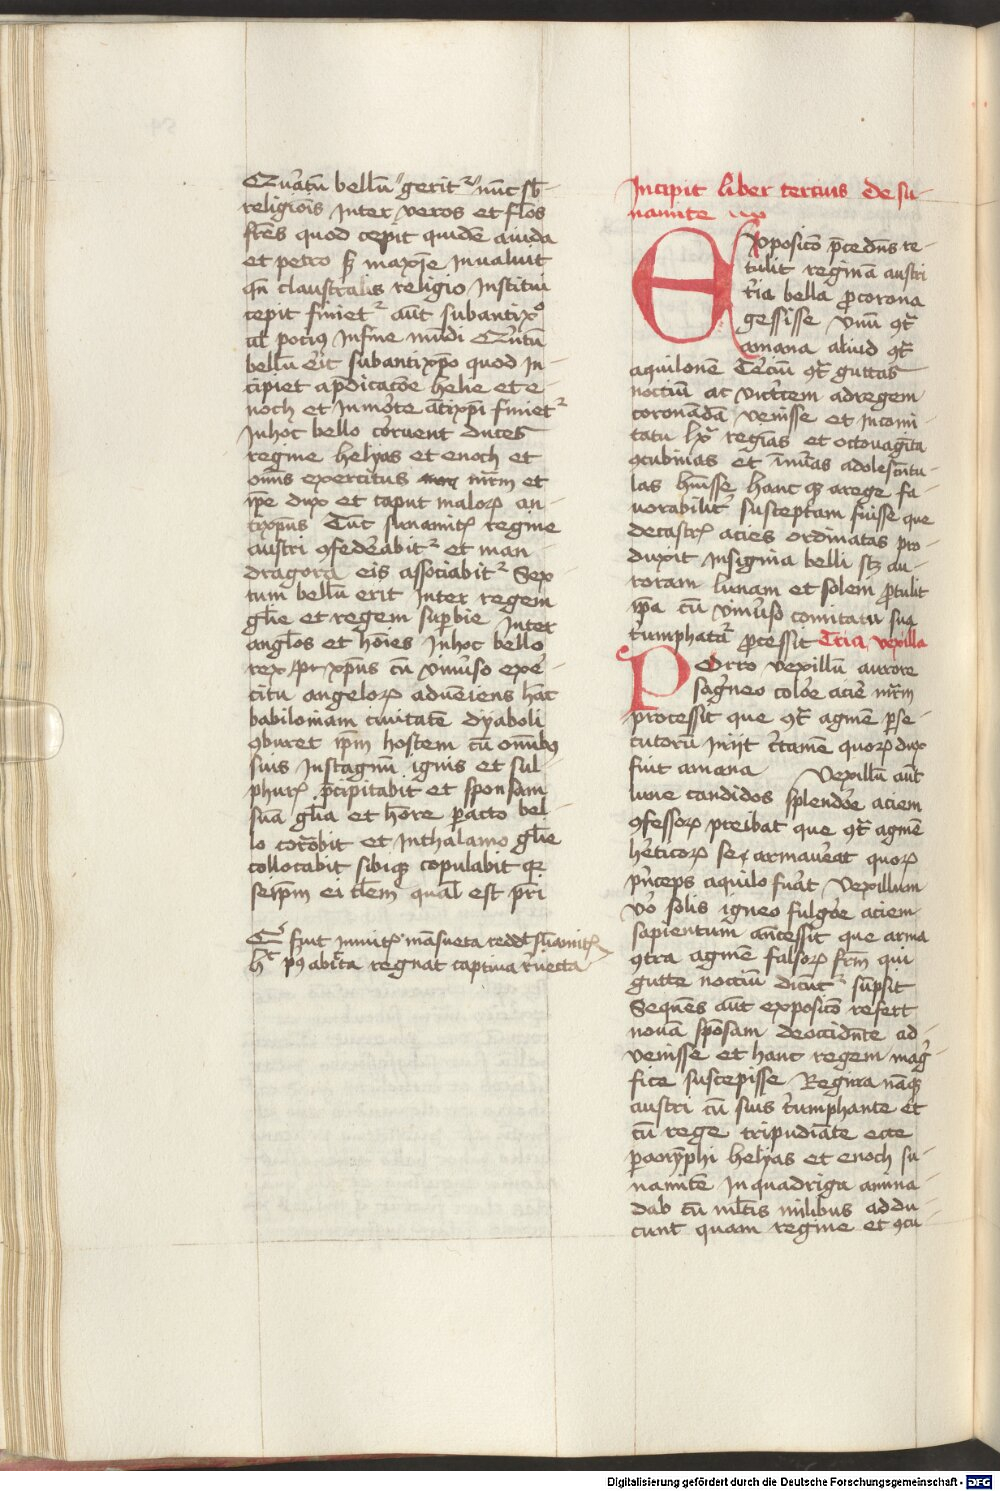 Quartū bellū gerit᷒ nūc sb
religiōis inter veros et fl̄os
fr̄es quod cepit quidē a iuda
et petro sꝫ maxīe inualuit
qn̄ claustralis religio institui
cepit finiet᷒ aūt sub antixᵒ
al̄ pociꝰ in fine mūdi Quītū
bellū erit sub antixp̄o quod in
cipiet a p̄dicatōe helie et e
noch et in mōrte ātixp̄i finiet᷒
In hoc bello cōruent duces
regine helyas et enoch et
om̄is exercitus nr̄m et
ip̄e dux et caput malorꝝ an
tixp̄us Tūc sunamitꝭ regine
austri ꝯfederabit᷒ et man
dragora eis associabit᷒ Sex
tum bellū erit inter regem
gl̄ie et regem sup̄bie inter
angl̄os et hōies In hoc bello
rex xp̄us cū vniu̓so exer̓
citu angelorꝝ adueniens hāc
babiloniam ciuitatē dyaboli
ꝯburet ip̄m hostem cū om̄ibꝰ
suis in stagnū ignis et sul
phurꝭ p̄cipitabit et sponsam
suā gl̄ia et hōre p̄acto bel
lo corōbit et in thalamo gl̄ie
collocabit sibiqꝫ copulabit qꝛ
seip̄m ei t̄lem qual̄ est pr̄i
fuit inmitꝭ māsueta redd̄t sūamitꝭ
h̄ pꝰ abīta regnat captiua r̓uecta
Incipit liber tercius de su
namite
Exposicō p̄cedn̄s re
tulit reginā austri
tr̓ia bella ꝓ corona
gessisse vnū ꝯtͣ
amana aliud ꝯtͣ
aquilonē Terciū ꝯtͣ guttas
noctiū ac victͥcem ad regem
coronādā venisse et in comi
tatu lxͣ regīas et octouagīta
ꝯcubinas et īnūas adolescētu
las hūisse hanc qꝫ a rege fa
uorabilit̓ susceptam fuisse que
de castrꝭ acies ordinatas pro
duxit insignia belli scꝫ au
roram lunam et solem ꝓtulit
ip̄a cū vniu̓so comitatu suo
tͥumphatͣ ꝓcessit Tria vexilla
Porro vexillū aurore
sāgͥneo colore aciē mr̄m
processit que ꝯtͣ agmē p̄se
cutorū iniit c̓tamē quorꝝ dux
fuit amana Vexillū aūt
lune candidos splendōe aciem
ꝯfessorꝝ preibat que ꝯtͣ agmē
he̓ticorꝝ se armauerat quorꝝ
prīceps aquilo fuāt Vexillum
vo̓ solis igneo fulgōe aciem
sapientum an̄cessit que arma
ꝯtra agmē falsorꝝ fr̄m qui
gutte noctiū dicūt᷒ sūpsit
Sequēs aūt exposicō refert
nouā spōsam de occidn̄te ad
venisse et hanc regem magͥ
fice suscepisse Regina nāqꝫ
austri cū suis tͥumphante et
cū rege tripudiāte ecce
paranym̄phi helyas et enoch su
namitē in quadriga amina
dab cū ml̄tis milibus addu
cunt quam regine et ꝯcu
Digitalisierung gefördert durch die Deutsche Forschungsgemeinschaft - DFG